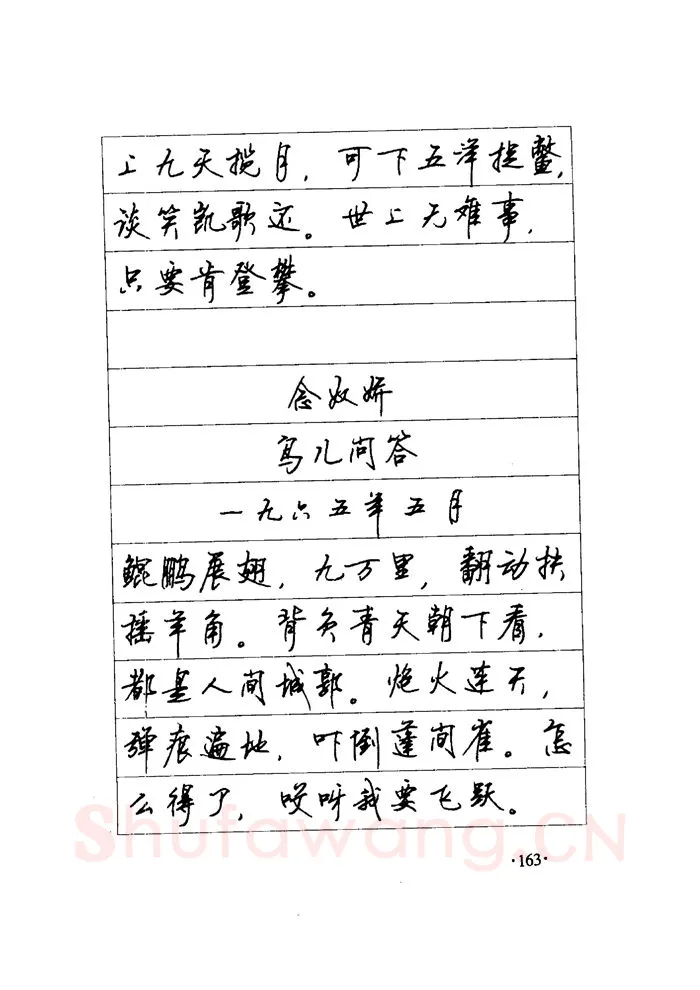 上九天揽月，可下五洋捉鳖，
谈笑凯歌还。世上无难事，
只要肯登攀。
念奴娇
鸟儿问答
一九六五年五月
鲲鹏展翅，九万里，翻动扶
摇羊角。背负青天朝下看，
都是人间城郭。炮火连天，
弹痕遍地，吓倒蓬间雀。怎
么得了，哎呀我要飞跃。
Shufawang.CN
·163·